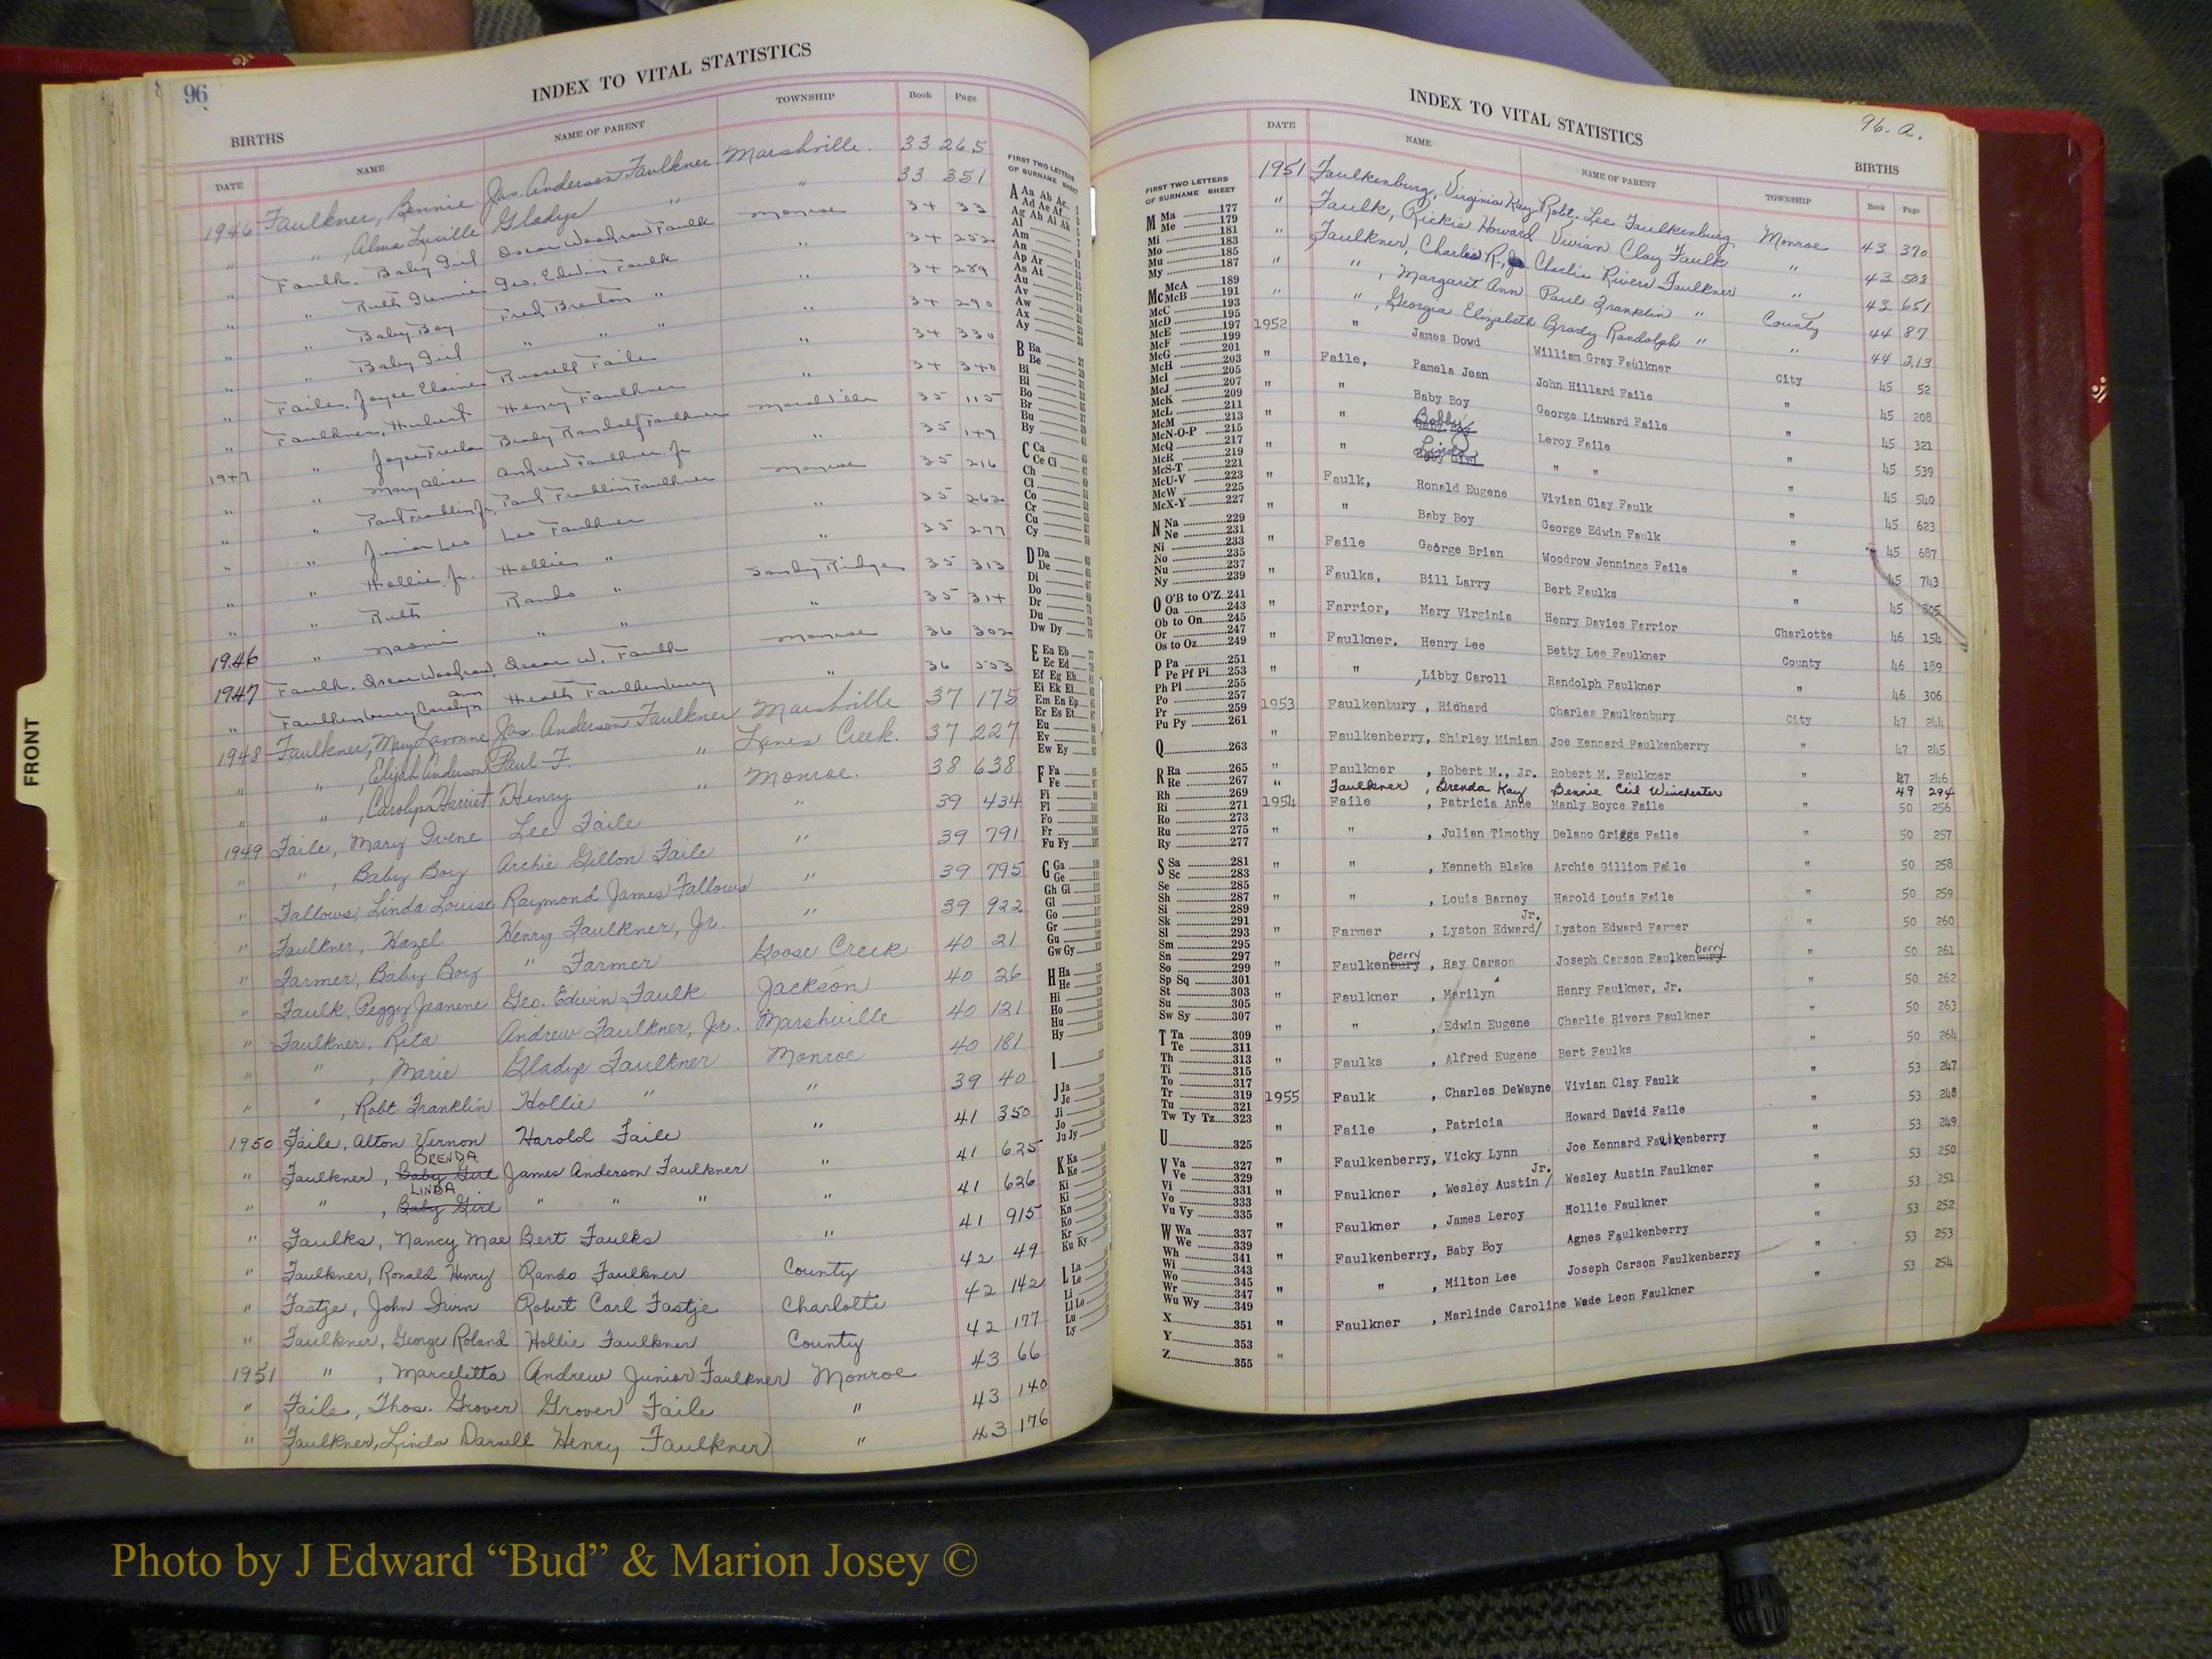 96
INDEX TO VITAL STATISTICS
BIRTHS
DATE NAME NAME OF PARENT TOWNSHIP Book Page
1946 Faulkner, Bennie Jas. Anderson Faulkner Marshville. 33 265
" " , Alma Lucille Gladys " " 33 351
" Faulk. Baby Girl Oscar Woodrow Faulk Monroe 34 33
" " Ruth Geo. Edwin Faulk " 34 252
" " Baby Boy Fred " " 34 289
" " Baby Girl " " " " 34 290
" Faile. Joyce Elaine Russell Faile " 34 330
" Faulkner, Hubert Henry Faulkner " 34 340
1947 " Joyce Brady Randolf Faulkner Marshville 35 115
" " Mary Alice Andrew Faulkner Jr " 35 149
" " Paul Franklin Jr, Paul Franklin Faulkner Monroe 35 216
" " Junior Leo Leo Faulkner " 35 262
" " Hollie, Jr. Hollie " " 35 277
" " Ruth Rando " Sandy Ridge 35 313
1946 " Naomi " " " 35 314
1947 Faulk. Oscar Woodrow, Oscar W. Faulk Monroe 36 302
" Faulkenbury, Carolyn Ann Heath Faulkenbury " 36 553
1948 Faulkner, Mary Lavonne Jas. Anderson Faulkner Marshville 37 175
" " , Elijah Anderson Paul F. " Lanes Creek. 37 227
" " , Carolyn Harriet Henry " Monroe. 38 638
1949 Faile, Mary Irene Lee Faile " 39 434
" " , Baby Boy Archie Gillon Faile " 39 791
" Fallows, Linda Louise Raymond James Fallows " 39 795
" Faulkner, Hazel Henry Faulkner, Jr. " 39 922
" Farmer, Baby Boy " Farmer Goose Creek 40 21
" Faulk, Peggy Jeanene Geo. Edwin Faulk Jackson 40 26
" Faulkner, Rita Andrew Faulkner, Jr. Marshville 40 121
" " , Marie Gladys Faulkner Monroe 40 181
" " , Robt. Franklin Hollie " " 39 40
1950 Faile, Alton Vernon Harold Faile " 41 350
BRENDA
" Faulkner, Baby Girl James Anderson Faulkner " 41 625
LINDA
" " , Baby Girl " " " " 41 626
" Faulks, Nancy Mae Bert Faulks " 41 915
" Faulkner, Ronald Henry Rando Faulkner County 42 49
" Fastje, John Irwin Robert Carl Fastje Charlotte 42 142
" Faulkner, George Roland Hollie Faulkner County 42 177
1951 " , Marceletta Andrew Junior Faulkner Monroe 43 66
" Faile, Thos. Grover Grover Faile " 43 140
" Faulkner, Linda Darnell Henry Faulkner " 43 176
FIRST TWO LETTERS
OF SURNAME SHEET
A Aa Ab Ac
Ad Ae Af
Ag Ah Ai Ak
Al
Am
An
Ap Ar
As At
Au
Av
Aw
Ax
Ay
B Ba
Be
Bi
Bl
Bo
Br
Bu
By
C Ca
Ce Ci
Ch
Cl
Co
Cr
Cu
Cy
D Da
De
Di
Do
Dr
Du
Dw Dy
E Ea Eb
Ec Ed
Ef Eg Eh
Ei Ek El
Em En Ep
Er Es Et
Eu
Ev
Ew Ey
F Fa
Fe
Fi
Fl
Fo
Fr
Fu Fy
G Ga
Ge
Gh Gi
Gl
Go
Gr
Gu
Gw Gy
H Ha
He
Hi
Ho
Hu
Hy
I
J Ja
Je
Ji
Jo
Ju Jy
K Ka
Ke
Ki
Kl
Kn
Ko
Kr
Ku Ky
L La
Le
Li
Ll Lo
Lu
Ly
FRONT
INDEX TO VITAL STATISTICS
96-a.
BIRTHS
DATE NAME NAME OF PARENT TOWNSHIP Book Page
1951 Faulkenburg, Virginia Kay Robt. Lee Faulkenburg Monroe 43 370
" Faulk, Rickie Howard Vivian Clay Faulk " 43 508
" Faulkner, Charles R., Jr. Charlie Rivers Faulkner " 43 651
" " , Margaret Ann Paul Franklin " County 44 87
" " , Georgia Elizabeth Brady Randolph " " 44 213
1952 " James Dowd William Gray Faulkner City 45 52
" Faile, Pamela Jean John Hillard Faile " 45 208
" " Baby Boy George Linward Faile " 45 321
" " Bobby Baby Boy Leroy Faile " 45 539
" " Linda Baby Girl " " " 45 540
" Faulk, Ronald Eugene Vivian Clay Faulk " 45 623
" " Baby Boy George Edwin Faulk " 45 687
" Faile George Brian Woodrow Jennings Faile " 45 743
" Faulks, Bill Larry Bert Faulks " 45 805
" Farrior, Mary Virginia Henry Davies Farrior Charlotte 46 154
" Faulkner. Henry Lee Betty Lee Faulkner County 46 189
" " ,Libby Caroll Randolph Faulkner " 46 306
1953 Faulkenbury , Richard Charles Faulkenbury City 47 244
" Faulkenberry, Shirley Mimiam Joe Kennard Faulkenberry " 47 245
" Faulkner , Robert M., Jr. Robert M. Faulkner " 47 246
" Faulkner , Brenda Kay Bennie Ceil Winchester 49 294
1954 Faile , Patricia Anne Manly Boyce Faile " 50 256
" " , Julian Timothy Delano Griggs Faile " 50 257
" " , Kenneth Blake Archie Gilliom Faile " 50 258
" " , Louis Barney Harold Louis Faile " 50 259
Jr.
" Farmer , Lyston Edward/ Lyston Edward Farmer " 50 260
berry berry
" Faulkenbury , Ray Carson Joseph Carson Faulkenbury " 50 261
" Faulkner , Marilyn Henry Faulkner, Jr. " 50 262
" " , Edwin Eugene Charlie Rivers Faulkner " 50 263
" Faulks , Alfred Eugene Bert Faulks " 50 264
1955 Faulk , Charles DeWayne Vivian Clay Faulk " 53 247
" Faile , Patricia Howard David Faile " 53 248
" Faulkenberry, Vicky Lynn Joe Kennard Faulkenberry " 53 249
Jr.
" Faulkner , Wesley Austin / Wesley Austin Faulkner " 53 250
" Faulkner , James Leroy Hollie Faulkner " 53 251
" Faulkenberry, Baby Boy Agnes Faulkenberry " 53 252
" " , Milton Lee Joseph Carson Faulkenberry " 53 253
" Faulkner , Marlinde Caroline Wade Leon Faulkner " 53 254
"
FIRST TWO LETTERS
OF SURNAME SHEET
M Ma 177
Me 179
Mi 181
Mo 183
Mu 185
My 187
Mc McA 189
McB 191
McC 193
McD 195
McE 197
McF 199
McG 201
McH 203
McI 205
McJ 207
McK 209
McL 211
McM 213
McN-O-P 215
McQ 217
McR 219
McS-T 221
McU-V 223
McW 225
McX-Y 227
N Na 229
Ne 231
Ni 233
No 235
Nu 237
Ny 239
O O'B to O'Z 241
Oa 243
Ob to On 245
Or 247
Os to Oz 249
P Pa 251
Pe Pf Pi 253
Ph Pl 255
Po 257
Pr 259
Pu Py 261
Q 263
R Ra 265
Re 267
Rh 269
Ri 271
Ro 273
Ru 275
Ry 277
S Sa 281
Sc 283
Se 285
Sh 287
Si 289
Sk 291
Sl 293
Sm 295
Sn 297
So 299
Sp Sq 301
St 303
Su 305
Sw Sy 307
T Ta 309
Te 311
Th 313
Ti 315
To 317
Tr 319
Tu 321
Tw Ty Tz 323
U 325
V Va 327
Ve 329
Vi 331
Vo 333
Vu Vy 335
W Wa 337
We 339
Wh 341
Wi 343
Wo 345
Wr 347
Wu Wy 349
X 351
Y 353
Z 355
Photo by J Edward “Bud” & Marion Josey ©